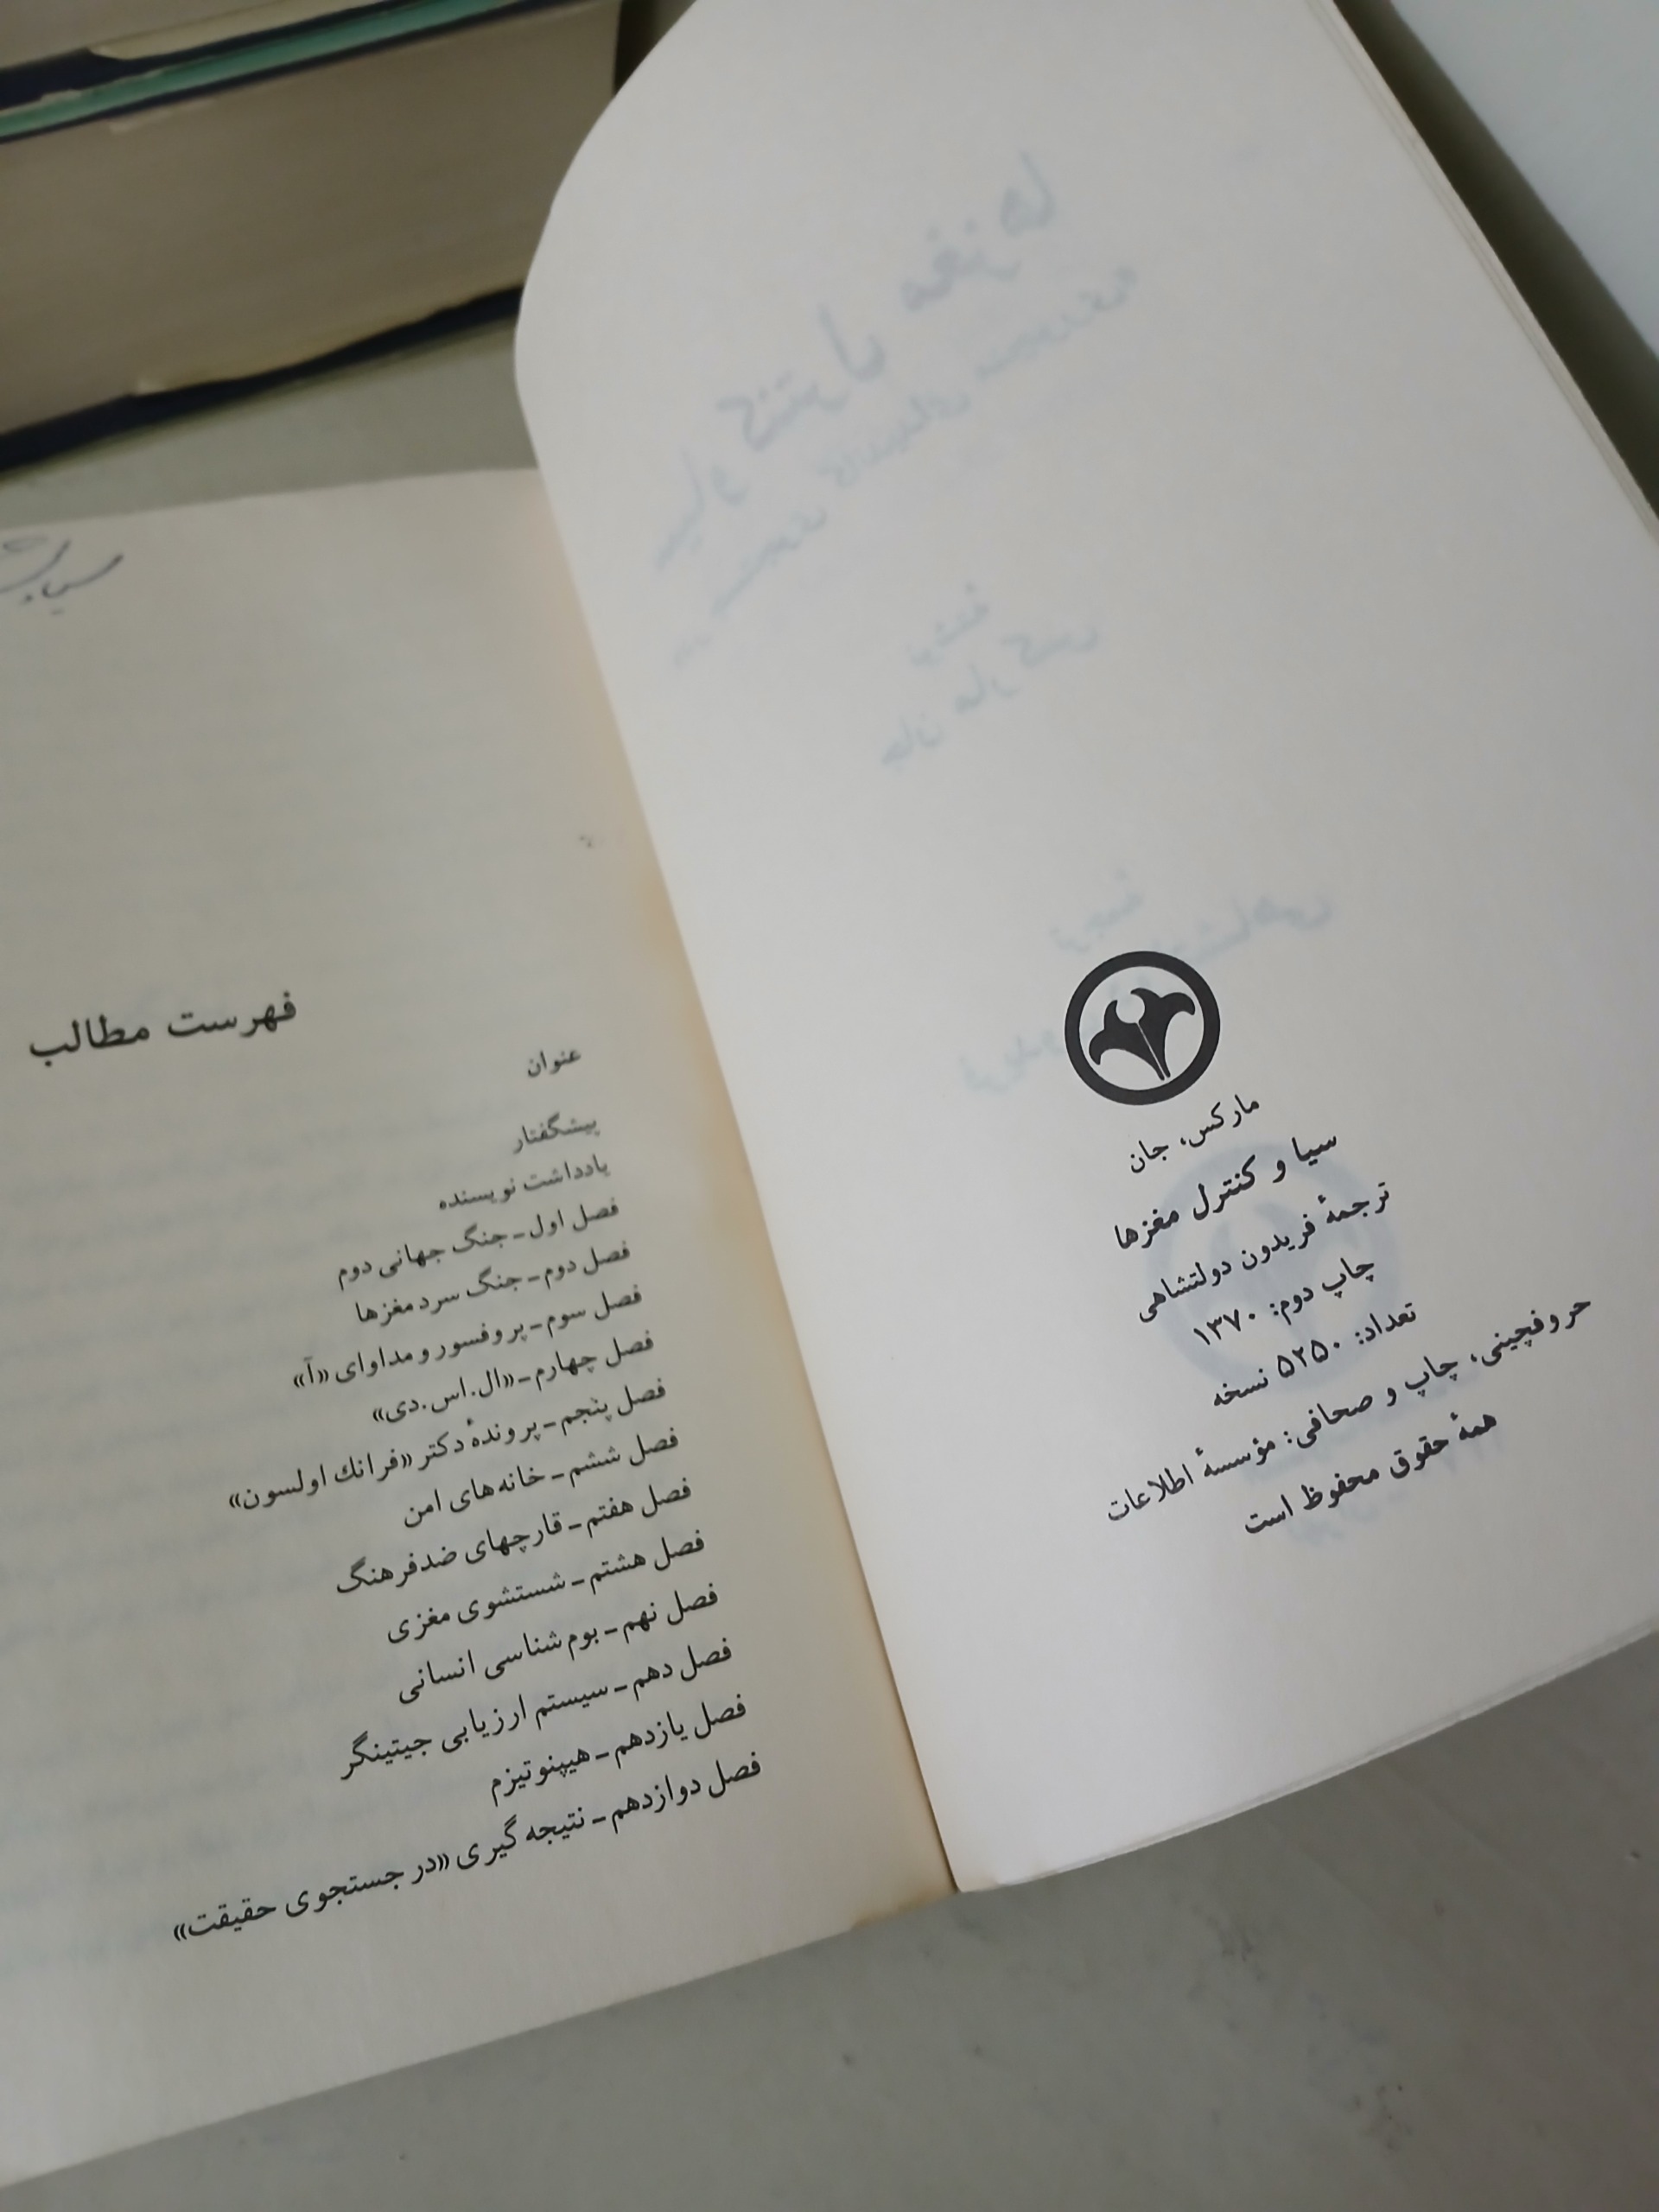 مارکس، جان
سیا و کنترل مغزها
ترجمهٔ فریدون دولتشاهی
چاپ دوم: ۱۳۷۰
تعداد: ۵۲۵۰ نسخه
حروفچینی، چاپ و صحافی: مؤسسهٔ اطلاعات
همهٔ حقوق محفوظ است
فهرست مطالب
عنوان
پیشگفتار
یادداشت نویسنده
فصل اول ـ جنگ جهانی دوم
فصل دوم ـ جنگ سرد مغزها
فصل سوم ـ پروفسور و مداوای «آ»
فصل چهارم ـ «ال.اس.دی»
فصل پنجم ـ پروندهٔ دکتر «فرانك اولسون»
فصل ششم ـ خانه‌های امن
فصل هفتم ـ قارچهای ضدفرهنگ
فصل هشتم ـ شستشوی مغزی
فصل نهم ـ بوم شناسی انسانی
فصل دهم ـ سیستم ارزیابی جیتینگر
فصل یازدهم ـ هیپنوتیزم
فصل دوازدهم ـ نتیجه گیری «در جستجوی حقیقت»